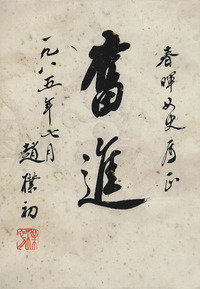 春暉女史屬正
奮進
一九八五年七月
趙樸初